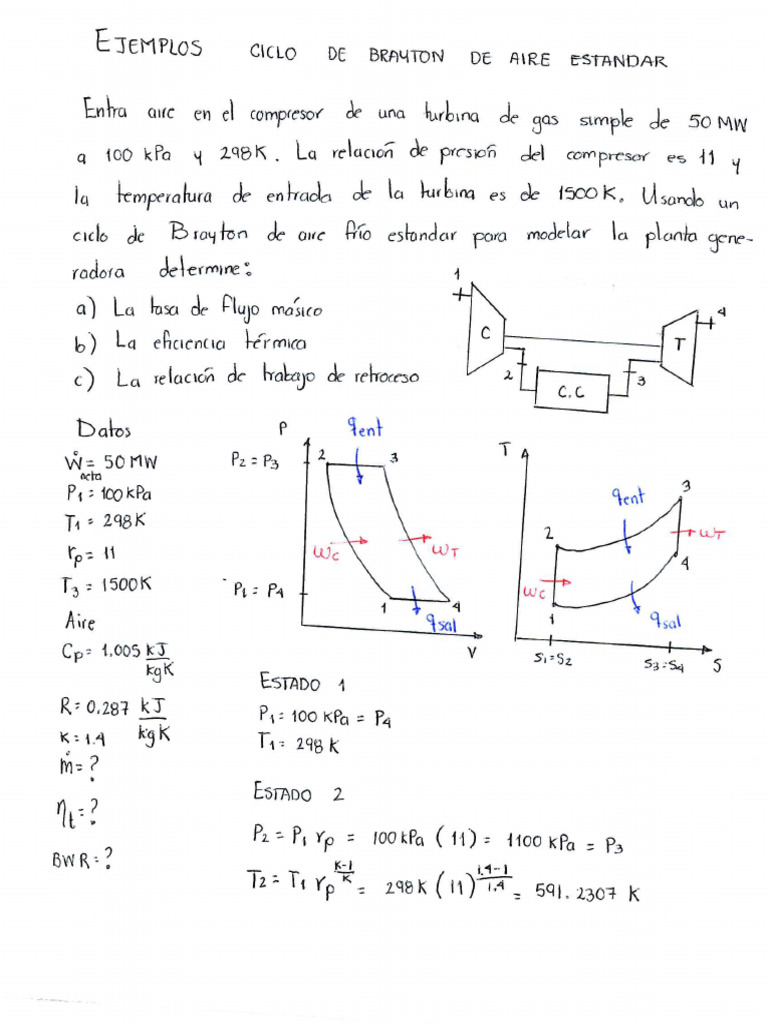 EJEMPLOS CICLO DE BRAYTON DE AIRE ESTANDAR
Entra aire en el compresor de una turbina de gas simple de 50 MW
a 100 kPa y 298K. La relación de presión del compresor es 11 y
la temperatura de entrada de la turbina es de 1500K. Usando un
ciclo de Brayton de aire frío estandar para modelar la planta gene-
radora determine:
a) La tasa de flujo másico
b) La eficiencia térmica
c) La relación de trabajo de retroceso
1
C
2
C.C
3
T
4
Datos
Ẇneta = 50 MW
P1 = 100 kPa
T1 = 298K
rp = 11
T3 = 1500K
Aire
Cp = 1.005 kJ/kgK
R = 0.287 kJ/kgK
K = 1.4
ṁ = ?
ηt = ?
BWR = ?
P
qent
P2 = P3
2
3
WC
WT
P1 = P4
1
4
qsal
V
T
3
qent
2
WT
4
WC
qsal
1
S1=S2
S3=S4
S
ESTADO 1
P1 = 100 kPa = P4
T1 = 298 K
ESTADO 2
P2 = P1 rp = 100 kPa (11) = 1100 kPa = P3
T2 = T1 rp^(K-1/K) = 298K (11)^(1.4-1/1.4) = 591.2307 K